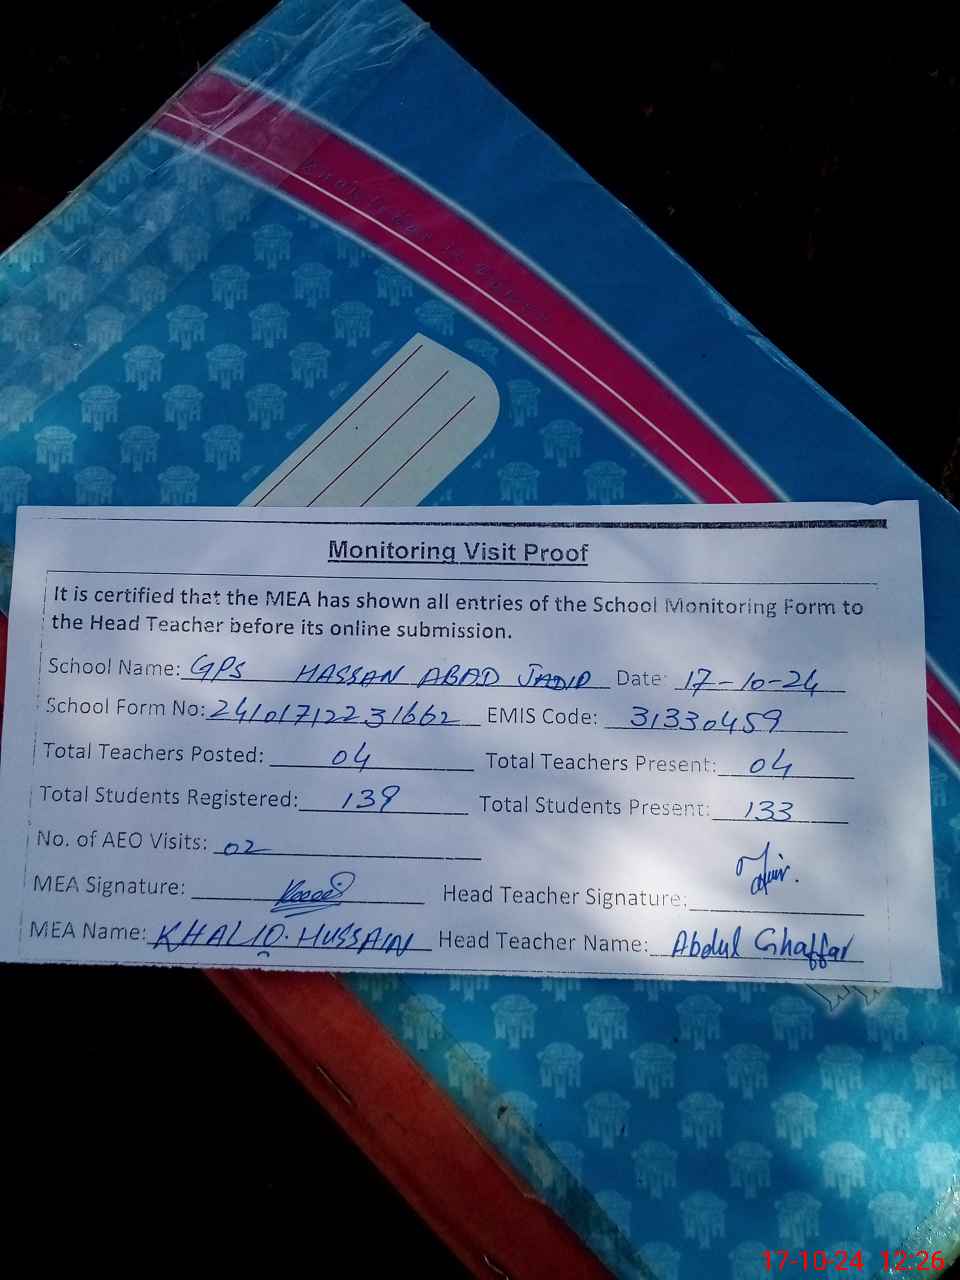 Monitoring Visit Proof
It is certified that the MEA has shown all entries of the School Monitoring Form to
the Head Teacher before its online submission.
School Name: GPS HASSAN ABAD JADID Date: 17-10-24
School Form No: 24101712231662 EMIS Code: 31330459
Total Teachers Posted: 04 Total Teachers Present: 04
Total Students Registered: 139 Total Students Present: 133
No. of AEO Visits: 02
MEA Signature: Head Teacher Signature:
MEA Name: KHALIQ. HUSSAIN Head Teacher Name: Abdul Ghaffar
17-10-24 12:26